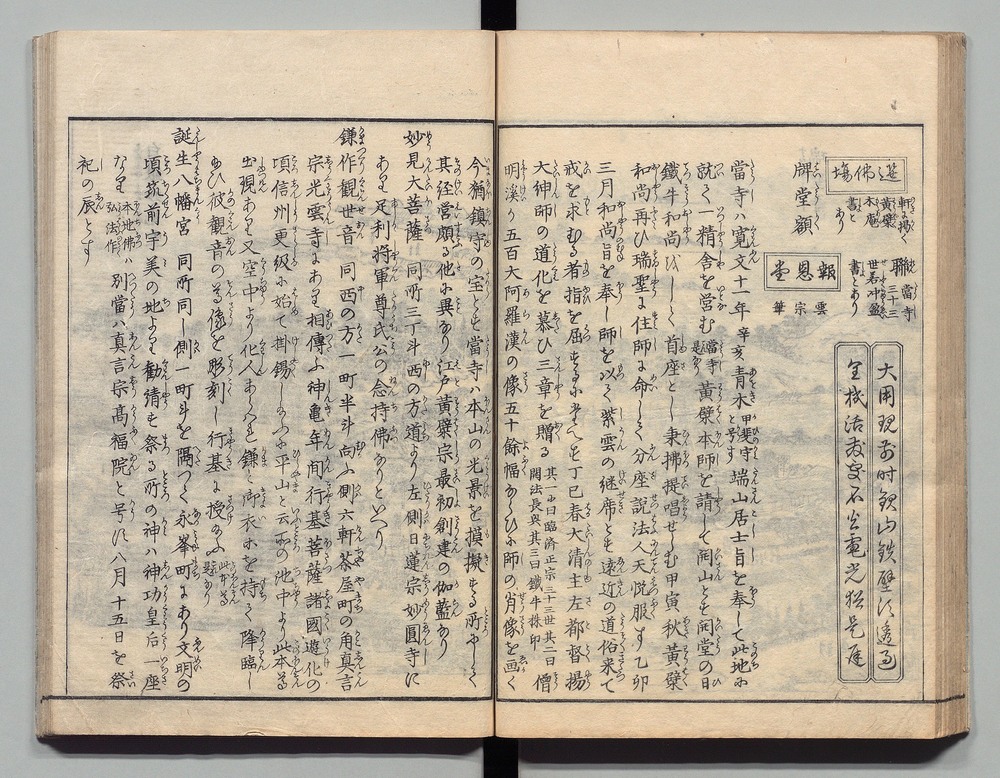 選佛塲
軒に掲く
黄檗
本庵
書と
あり
聯
當寺
三十三
世若冲盈
書とあり
大用現前时銀山鉄壁须透過
全机活
電光
牌堂額
報恩堂
雲宗筆
當寺ハ寛文十一年辛亥青木甲斐守と号す端山居士旨を奉して此地に
就て一精舎を営む當寺是なり黄檗本師を請して開山とす開堂の日
鐵牛和尚びしく首座とし秉拂提唱せしむ甲寅秋黄檗
和尚再ひ瑞聖に住師に命して分座説法人天悦服す乙卯
三月和尚旨を奉し師を以て紫雲の継席とす遠近の道俗来て
戒を求むる者指を屈するに堪へす丁巳春大清主左都督揚
大紳師の道化を慕ひ三章を贈る其一曰臨済正宗三十三世其二曰僧
閤法長與其三曰鐵牛株印
明溪り五百大阿羅漢の像五十餘幅ならひに師の肖像を画く
今猶鎮守の宝とす當寺ハ本山の光景を摸擬する所にして
其経営頗る他に異なり江戸黄檗宗最初創建の伽藍なり
妙見大菩薩 同所三丁斗西の方道より左側日蓮宗妙圓寺に
あり足利將軍尊氏公の念持佛なりといへり
鎌作観世音 同西の方一町半斗向ふ側六軒茶屋町の角真言
宗光雲寺にあり相傳ふ神亀年间行基菩薩諸國遊化の
頃信州更級に始て掛錫しのふ平山と云所の池中より此本尊
出現あり又空中より化人あらハれ鎌と御衣木を持て降臨し
ゆひ彼観音の尊像を彫刻し行基に授のふ此本尊是なり
誕生八幡宮 同所同し側一町斗を隔つて永峯町にあり文明の
頃筑前宇美の地より勧請し祭る所の神ハ神功皇后一座
なり本地佛ハ弘法作別當ハ真言宗髙福院と号次八月十五日を祭
祀の辰とす